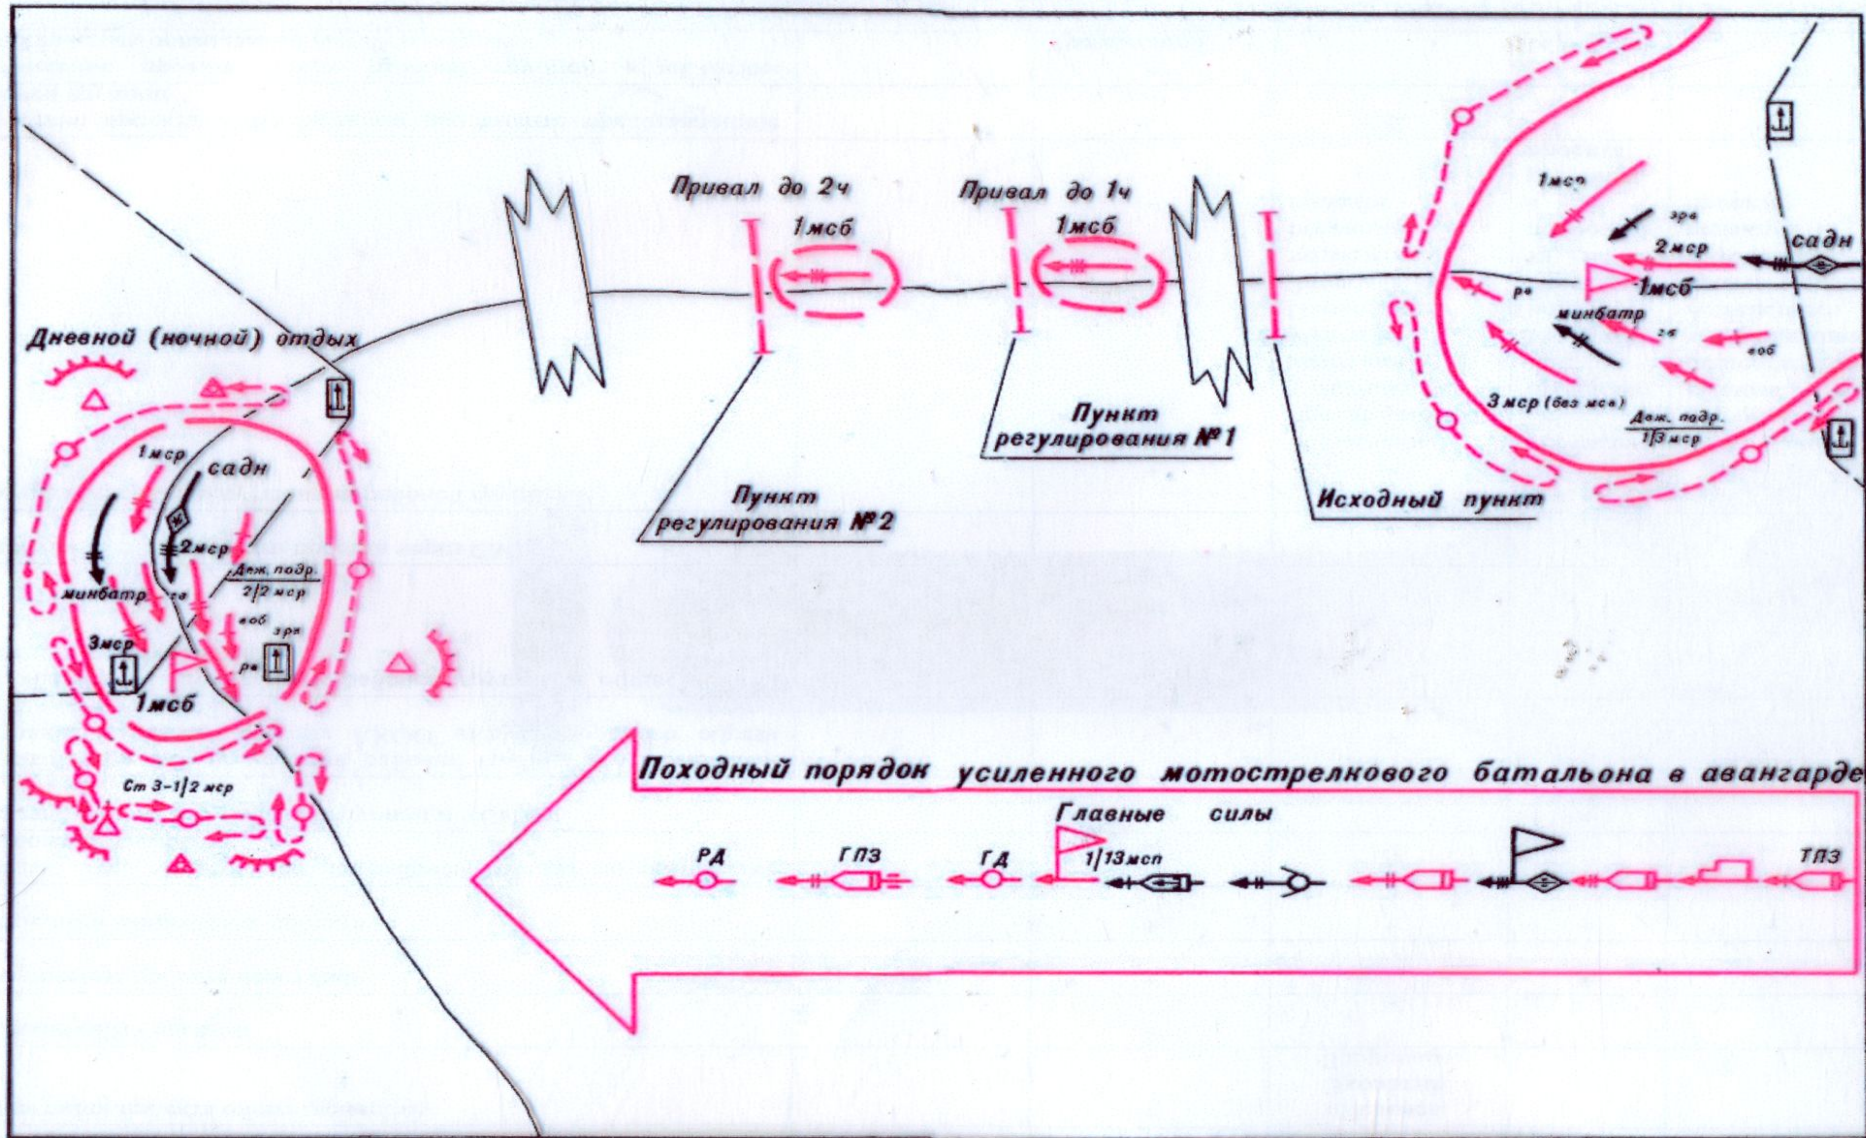 Привал до 2ч
1мсб
Привал до 1ч
1мсб
1мср
зрв
2мср
садн
1мсб
рв
минбатр
гв
воб
3мср (без мсв)
Деж. подр.
1/3 мср
Исходный пункт
Пункт
регулирования №1
Пункт
регулирования №2
Дневной (ночной) отдых
1мср
садн
2мср
Деж. подр.
2/2 мср
минбатр
гв
воб
зрв
3мср
рв
1мсб
Ст 3-1/2 мср
Походный порядок усиленного мотострелкового батальона в авангарде
Главные силы
РД
ГПЗ
ГД
1/13мсп
ТПЗ